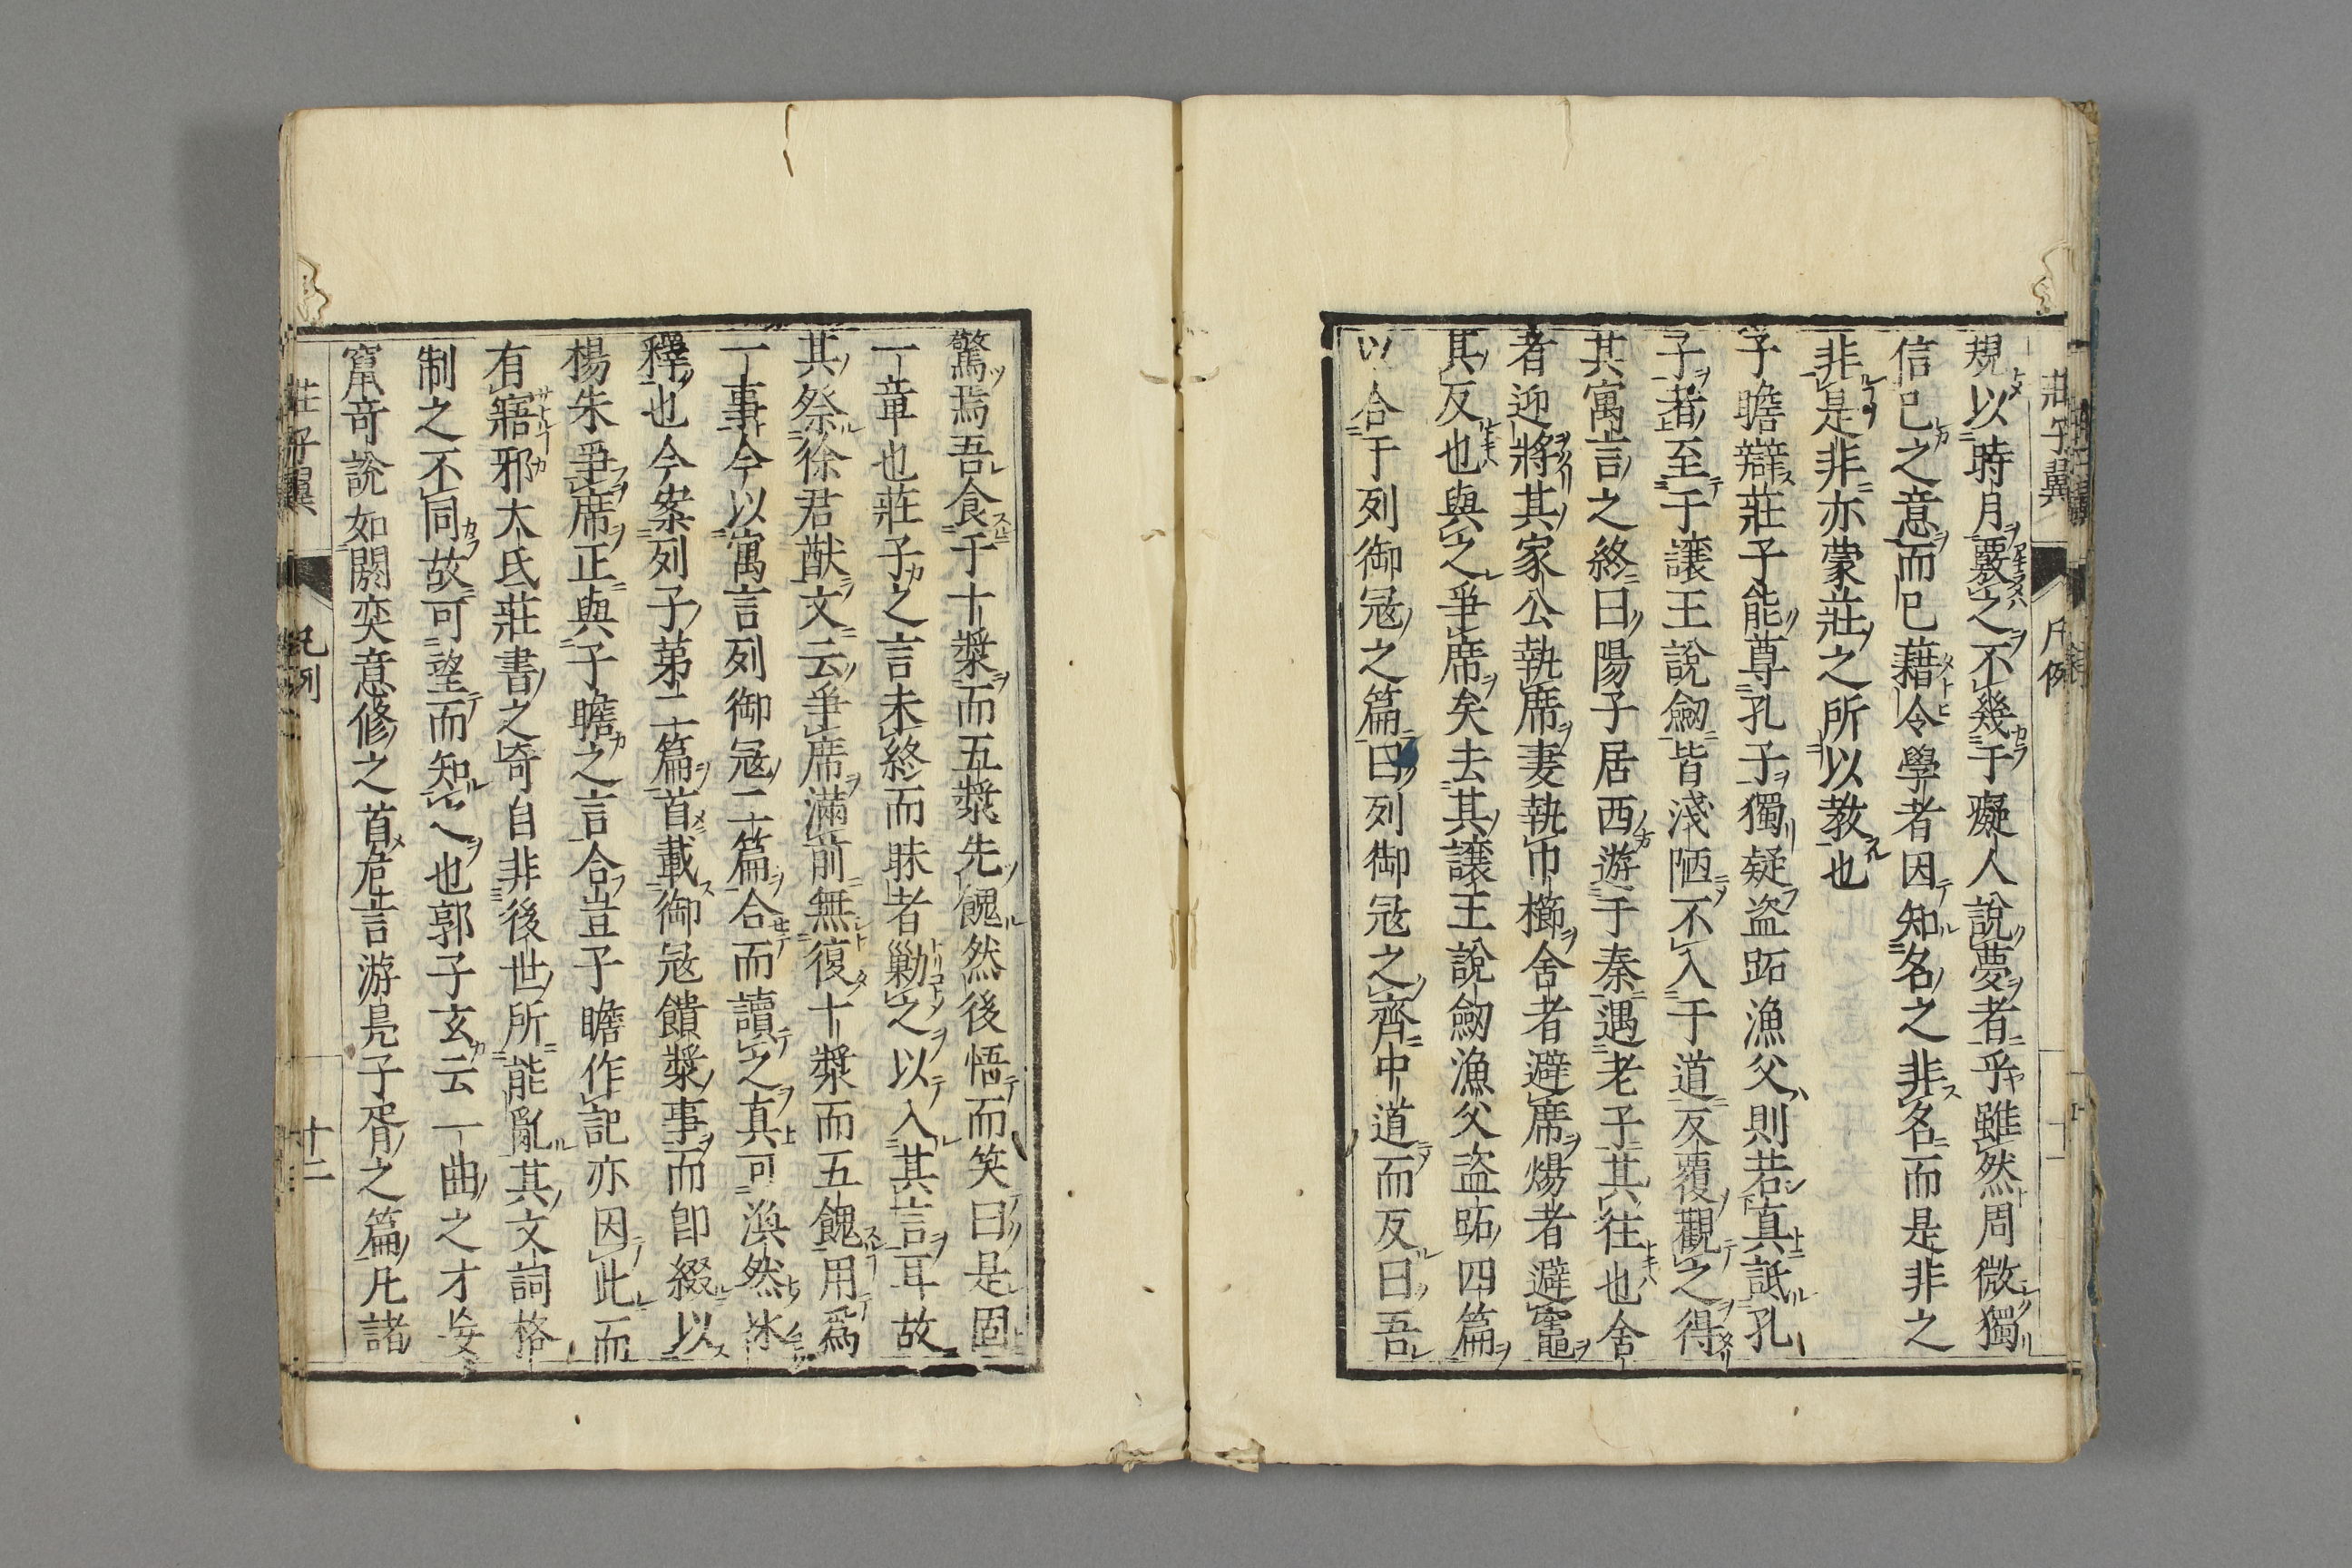 莊子翼 凡例
規以時月覈之不幾于癡人說夢者乎雖然周微獨
信已之意而已藉令學者因知名之非名而是非之
非是非亦蒙莊之所以教也
子瞻辯莊子能尊孔子獨疑盜跖漁父則若真詆孔
子者至于讓王說劒皆淺陋不入于道反覆觀之得
其寓言之終曰陽子居西遊于秦遇老子其往也舍
者迎將其家公執席妻執巾櫛舍者避席煬者避竈
其反也與之爭席矣去其讓王說劒漁父盜跖四篇
以合于列御冦之篇曰列御冦之齊中道而反曰吾
驚焉吾食于十漿而五漿先餽然後悟而笑曰是固
一章也莊子之言未終而昧者勦之以入其言耳故
其祭徐君猷文云爭席滿前無復十漿而五餽用爲
一事今以寓言列御冦二篇合而讀之真可渙然氷
釋也今案列子第二篇首載御冦饋漿事而卽綴以
楊朱爭席正與子瞻之言合豈子瞻作記亦因此而
有寤邪大氏莊書之奇自非後世所能亂其文詞格
制之不同故可望而知之也郭子玄云一曲之才妄
竄奇說如閼奕意修之首危言游鳧子胥之篇凡諸
莊子翼 凡例 十二